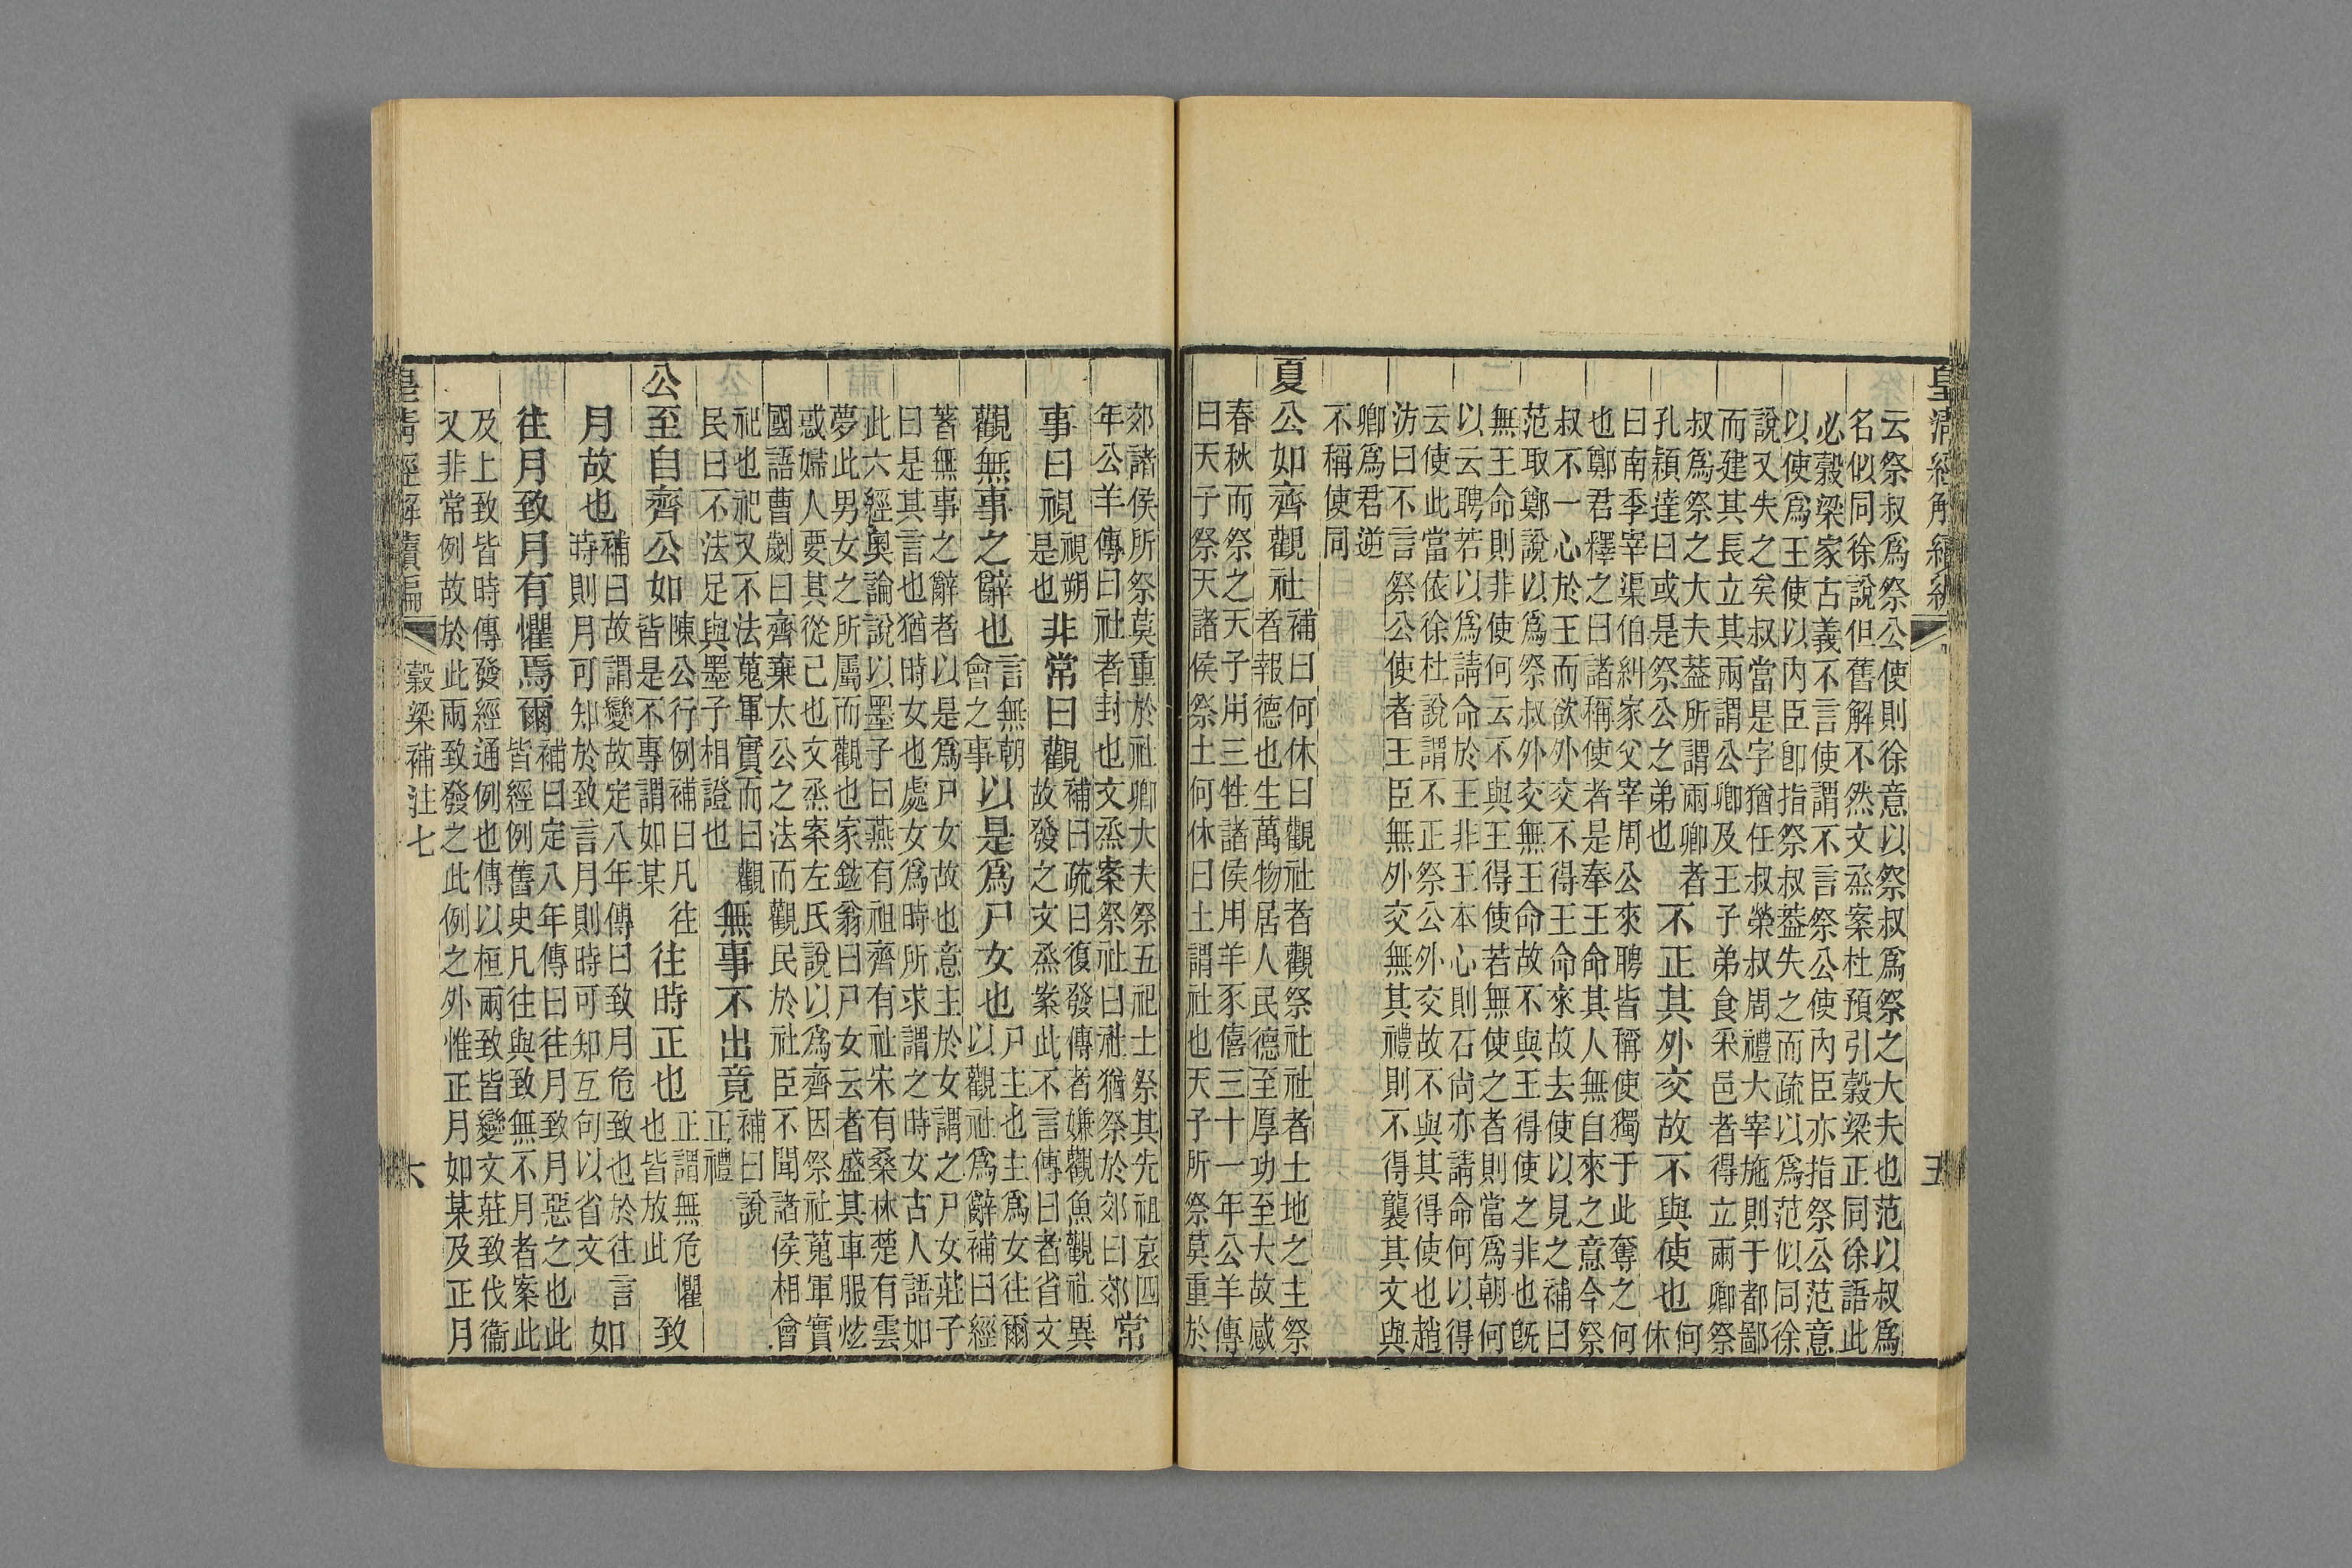 皇清經解續編
云祭叔爲祭公使則徐意以祭叔爲祭之大夫也范以叔爲
名似同徐說但舊解不然文烝案杜預引穀梁正同徐語此
必穀梁家古義不言使謂不言祭公使內臣亦指祭公范意
以使爲王使以內臣卽指祭叔葢失之而疏以爲范似同徐
說又失之矣叔當是字猶任叔榮叔周禮大宰施則于都鄙
而建其長立其兩謂公卿及王子弟食采邑者得立兩卿祭
叔爲祭之大夫葢所謂兩卿者
孔穎達曰或是祭公之弟也
不正其外交故不與使也
何
休
曰南季宰渠伯糾家父宰周公來聘皆稱使獨于此奪之何
也鄭君釋之曰諸稱使者是奉王命其人無自來之意今祭
叔不一心於王而欲外交不得王命來故去使以見之補曰
范取鄭說以爲祭叔外交無王命故不與王得使之非也旣
無王命則非使何云不與王得使若無使之者則當爲朝何
以云聘若以爲請命於王非王本心則石尚亦請命何以得
云使此當依徐杜說謂不正祭公外交故不與其得使也趙
汸曰不言祭公使者王臣無外交無其禮則不得襲其文與
卿爲君逆
不稱使同
夏公如齊觀社
補曰何休曰觀社者觀祭社社者土地之主祭
者報德也生萬物居人民德至厚功至大故感
春秋而祭之天子用三牲諸侯用羊豕僖三十一年公羊傳
曰天子祭天諸侯祭土何休曰土謂社也天子所祭莫重於
五
郊諸侯所祭莫重於社卿大夫祭五祀士祭其先祖哀四
年公羊傳曰社者封也文烝案祭社曰社猶祭於郊曰郊
常
事曰視
視朔
是也
非常曰觀
補曰疏曰復發傳者嫌觀魚觀社異
故發之文烝案此不言傳曰者省文
觀無事之辭也
言無朝
會之事
以是爲尸女也
尸主也主爲女往爾
以觀社爲辭補曰經
著無事之辭者以是爲尸女故也意主於女謂之尸女莊子
曰是其言也猶時女也處女爲時所求謂之時女古人語如
此六經奧論說以墨子曰燕有祖齊有社宋有桑林楚有雲
夢此男女之所屬而觀也家鉉翁曰尸女云者盛其車服炫
惑婦人要其從已也文烝案左氏說以爲齊因祭社蒐軍實
國語曹劌曰齊棄太公之法而觀民於社臣不聞諸侯相會
祀也祀又不法蒐軍實而曰觀
民曰不法足與墨子相證也
無事不出竟
補曰說
正禮
公至自齊公如
陳公行例補曰凡
皆是不專謂如某
往
往時正也
正謂無危懼
也皆放此
致
月故也
補曰故謂變故定八年傳曰致月危致也於往言
時則月可知於致言月則時可知互句以省文
如
往月致月有懼焉爾
補曰定八年傳曰往月致月惡之也此
皆經例舊史凡往與致無不月者案此
及上致皆時傳發經通例也傳以桓兩致皆變文莊致伐衞
又非常例故於此兩致發之此例之外惟正月如某及正月
皇清經解續編
穀梁補注七
六